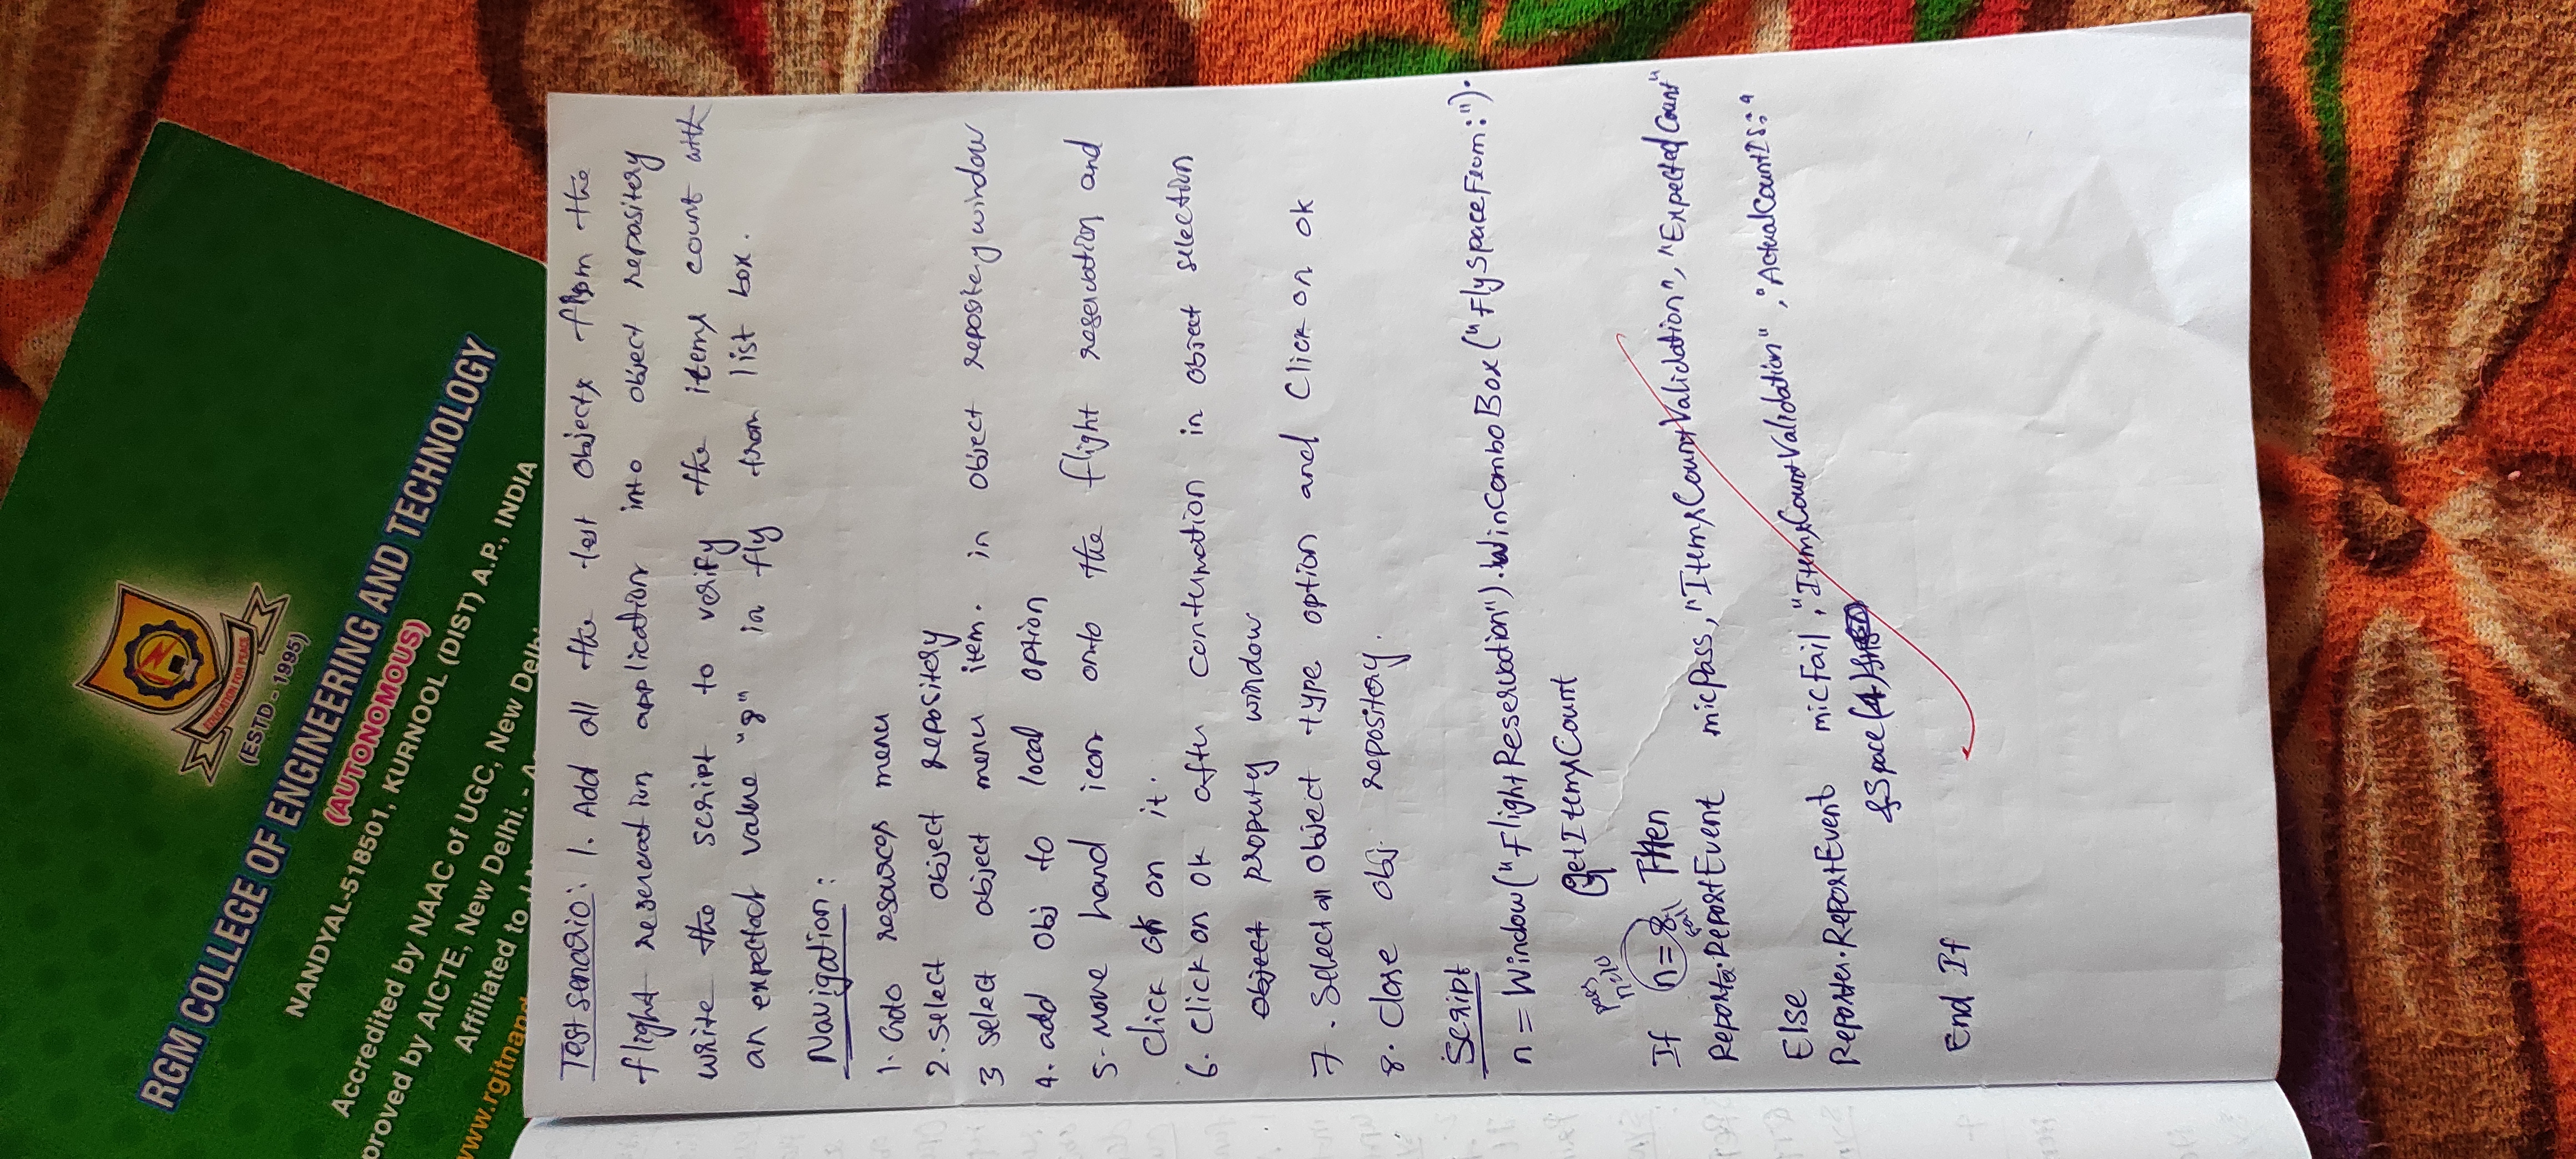 EDUCATION FOR PEACE
(ESTD - 1995)
RGM COLLEGE OF ENGINEERING AND TECHNOLOGY
(AUTONOMOUS)
NANDYAL-518501, KURNOOL (DIST) A.P., INDIA
Accredited by NAAC of UGC, New Delhi
proved by AICTE, New Delhi. -
Affiliated to
www.rgitnand
Test senario: 1. Add all the test objects from the
flight reservation application into object repositery
write the script to verify the items count with
an expected value "8" in fly from list box.
Navigation:
1. Goto resources menu
2. select object repositery
3 select object menu item. in object repositery window
4. add obj to local option
5- Move hand icon onto the flight reservation and
click ok on it.
6. Click on ok after conturmation in object selection
object property window
7. Select all object type option and Click on ok
8. Close obj. repository.
Script
n = Window("FlightReservation").WinComboBox("FlySpaceFrom:").
GetItemsCount
pass
n=10
If n=8 Then
fail
Reporte.ReportEvent micPass, "ItemsCountValidation", "ExpectedCount"
Else
Reporter.ReportEvent micFail, "ItemsCountValidation", "ActualCountIs:"
&Space(4)
End If